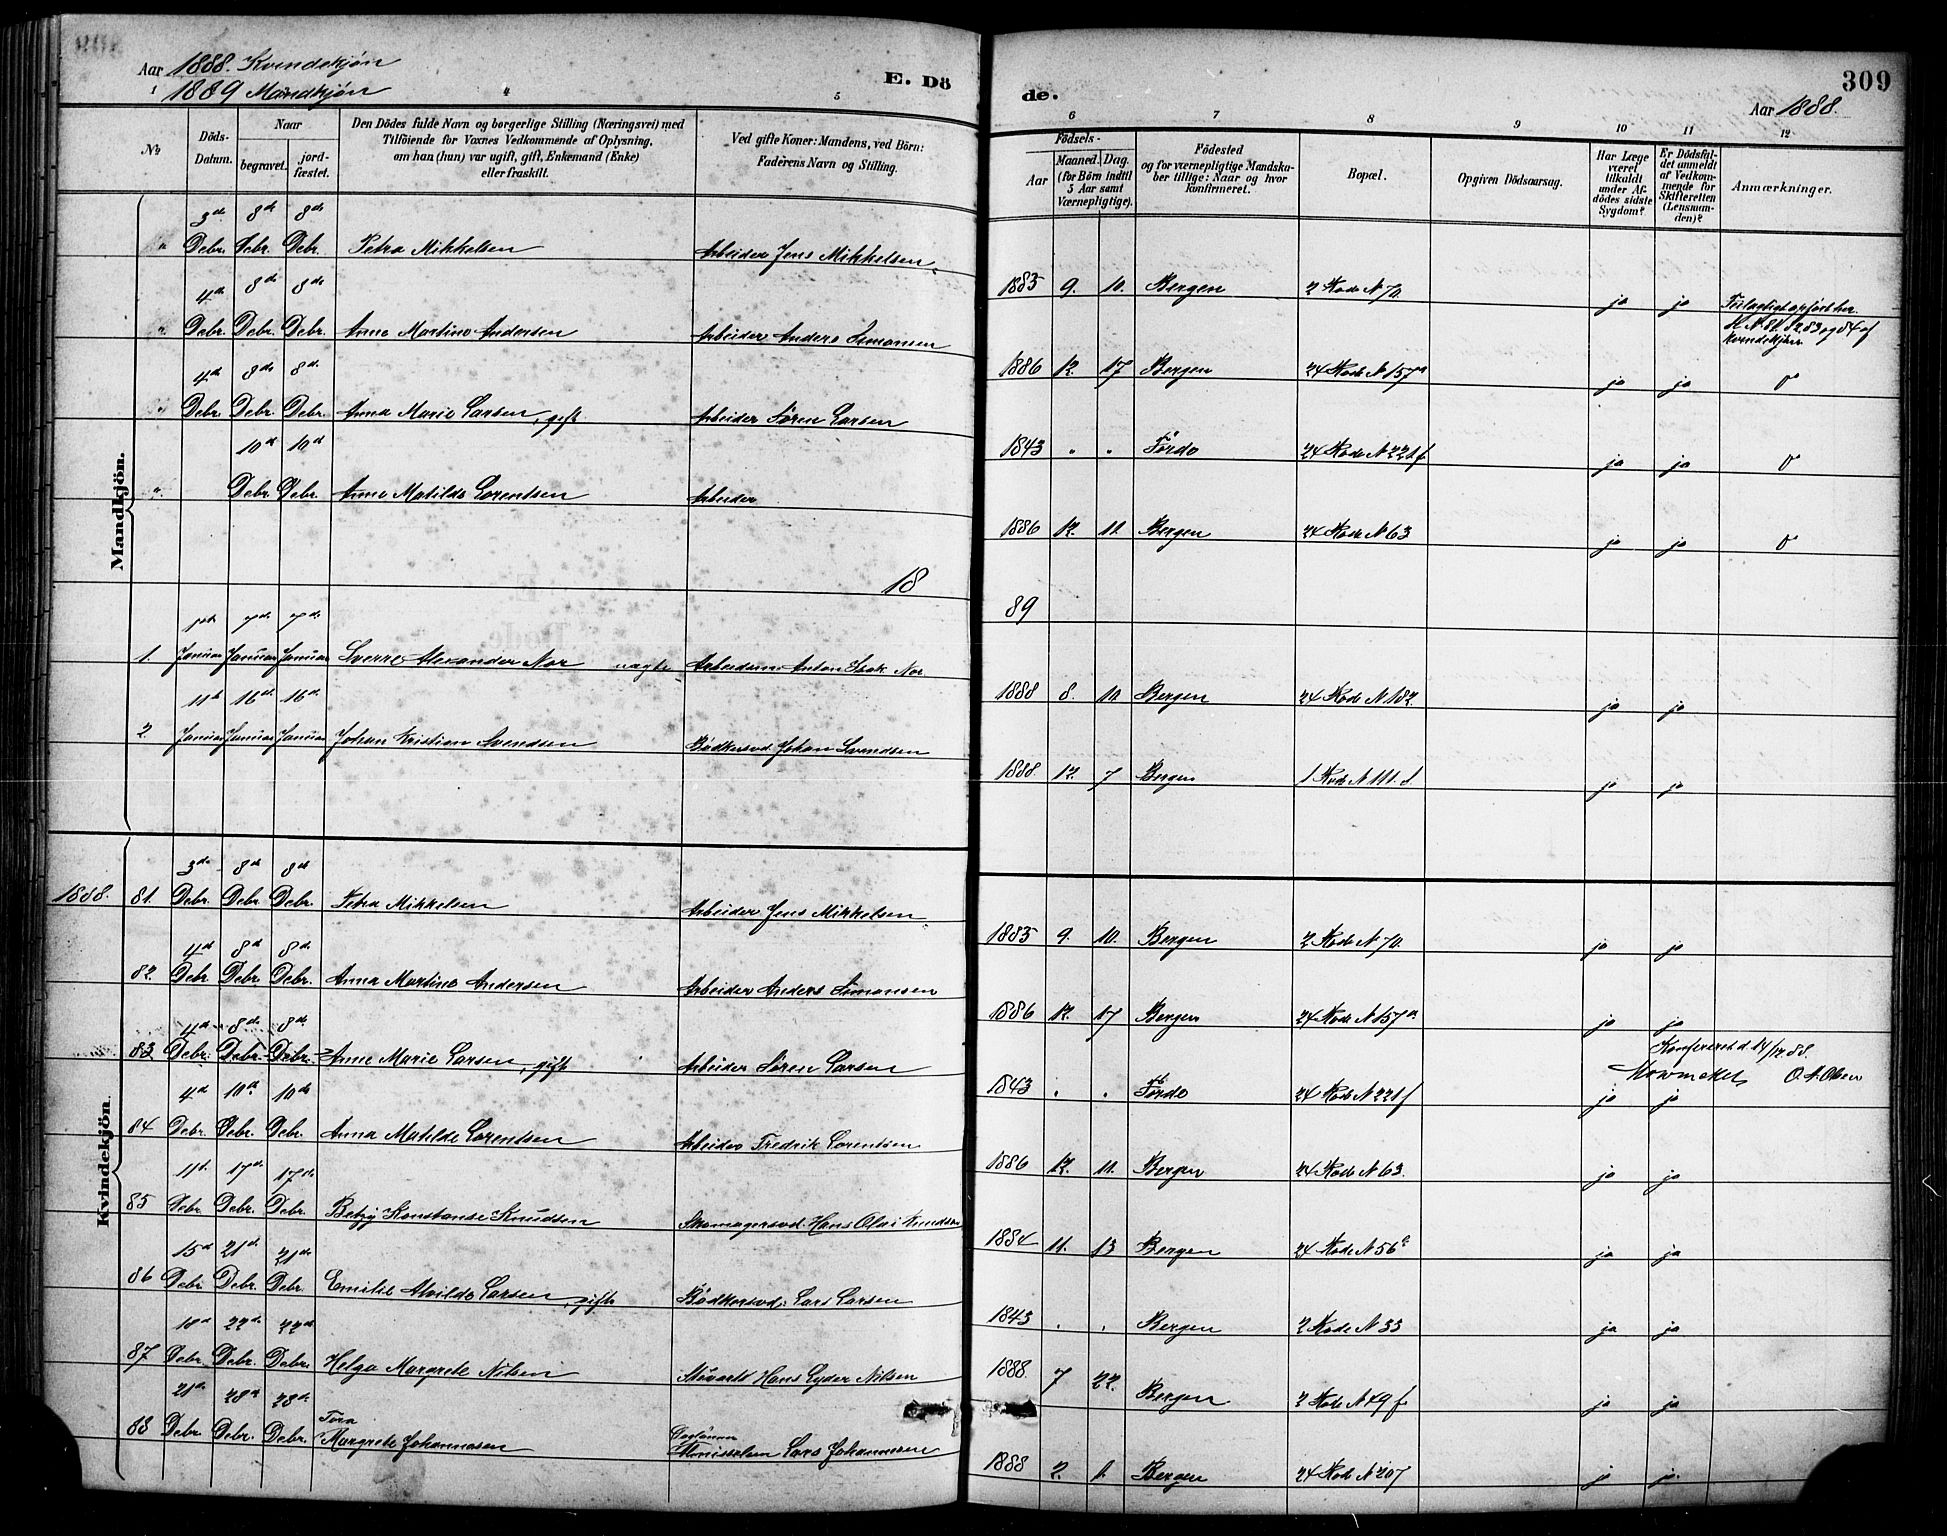 Aar 1888. Kvindekjön
1889 Mandkjön
E. Dö
de.
309
Aar 1888.
1 4 5 6 7 8 9 10 11 12
No
Döds-Datum.
Naar
begravet.
jord-fæstet.
Den Dödes fulde Navn og borgerlige Stilling (Næringsvei) med
Tilföiende for Voxnes Vedkommende af Oplysning,
om han (hun) var ugift, gift, Enkemand (Enke)
eller fraskilt.
Ved gifte Koner: Mandens, ved Börn:
Faderens Navn og Stilling.
Födsels-
Aar
Maaned. Dag.
(for Börn indtil
5 Aar samt
Værnepligtige).
Födested
og for værnepligtige Mandska-
ber tillige: Naar og hvor
konfirmeret.
Bopæl.
Opgiven Dödsaarsag.
Har Læge
været
tilkaldt
under Af-
dödes sidste
Sygdom?
Er Dödsfal-
det anmeldt
af Vedkom-
mende for
Skifteretten
(Lensman-
den)?
Anmærkninger.
Mandkjön.
" 3de Debr. 8de Debr. 8de Debr. Petra Mikkelsen Arbeider Jens Mikkelsen 1885 9. 10. Bergen 2 Rode N 70 ja ja Feilagtigt opført her.
N. 81, 82, 83 og 84 af
Kvindekjøn
" 4de Debr. 8de Debr. 8de Debr. Anna Martine Andersen Arbeider Anders Simonsen 1886 12. 17 Bergen 24 Rode N 157a ja ja
" 4d Debr. 8de Debr. 8de Debr. Anna Marie Larsen, gift Arbeider Søren Larsen 1843 " " Førde 24 Rode N 221f ja ja
" 10d Debr. 10d Debr. Anna Matilde Lorentsen Arbeider 1886 12. 11. Bergen 24 Rode N 63 ja ja
18 89
1. Januar 7de Januar 7de Januar Sverre Alexander Nor uægte Arbeider Anton Isak Nor 1888 8. 10. Bergen 24 Rode N 182 ja ja
2. 11te Januar 16de Januar 16de Januar Johan Kristian Svendsen Bødkersvd. Johan Svendsen 1888. 12. 7 Bergen 1 Rode N 111.d ja ja
Kvindekjön.
1888. 81. 3de Debr. 8de Debr. 8de Debr. Petra Mikkelsen Arbeider Jens Mikkelsen 1885 9. 10. Bergen 2 Rode N 70 ja ja
82. 4d Debr. 8d Debr. 8de Debr. Anna Martine Andersen Arbeider Anders Simonsen 1886 12. 17 Bergen 24 Rode N 157a ja ja
83 4d Debr. 8de Debr. 8de Debr. Anna Marie Larsen, gift Arbeider Søren Larsen 1843 . . Førde 24 Rode N 221f ja ja
Konfereret d. 14/12 88.
O. A. Olsen
84 4d Debr. 10d Debr. 10de Debr. Anna Matilde Lorentsen Arbeider Fredrik Lorentsen 1886 12. 11. Bergen 24 Rode N 63. ja ja
85 11te Debr. 17de Debr. 17de Debr. Betzy Konstanse Knudsen Skomagersvd. Hans Olai Knudsen 1884 11. 13 Bergen 24 Rode N 56 ja ja
86 15d Debr. 21de Debr. 21de Debr. Emilie Alvilde Larsen, gift Bødkersvd. Lars Larsen 1843 . . Bergen 2 Rode N 33 ja ja
87 Debr. 22de Debr. 22de Debr. Helga Margrete Nilsen Stuvert Hans Lyder Nilsen 1888. 7 22. Bergen 2 Rode N 49 f ja ja
88 21de Debr. 28d Debr. 28de Debr. Tora
Margrete Johannesen Lars Johannesen 1888 2. 1. Bergen 24 Rode N 207 ja ja.